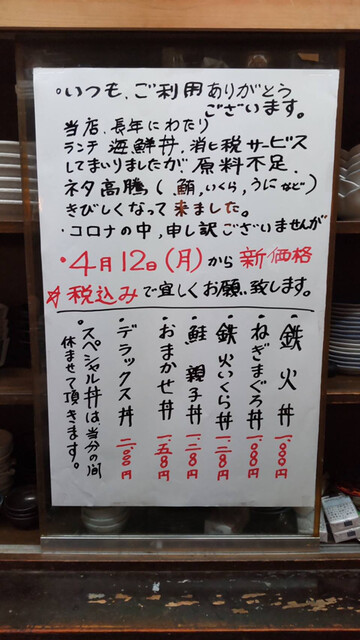 ・いつも、ご利用ありがとう
ございます。
当店、長年にわたり
ランチ 海鮮丼、消ヒ税サービス
してまいりましたが 原料不足、
ネタ高騰(鮪,いくら,うになど)
きびしくなって来ました。
・コロナの中,申し訳ございませんが
・4月12日(月)から新価格
☆税込みで宜しくお願い致します。
・鉄火丼 1.000円
・ねぎまぐろ丼 1.000円
・鉄火いくら丼 1.280円
・鮭親子丼 1.280円
・おまかせ丼 1.580円
・デラックス丼 2.000円
・スペシャル丼は、当分の間
休ませて頂きます。